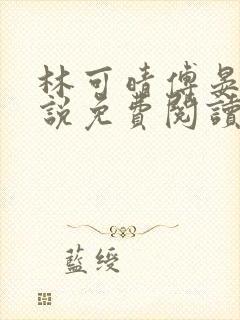 林可晴傅晏
說免費閱讀
藍綬